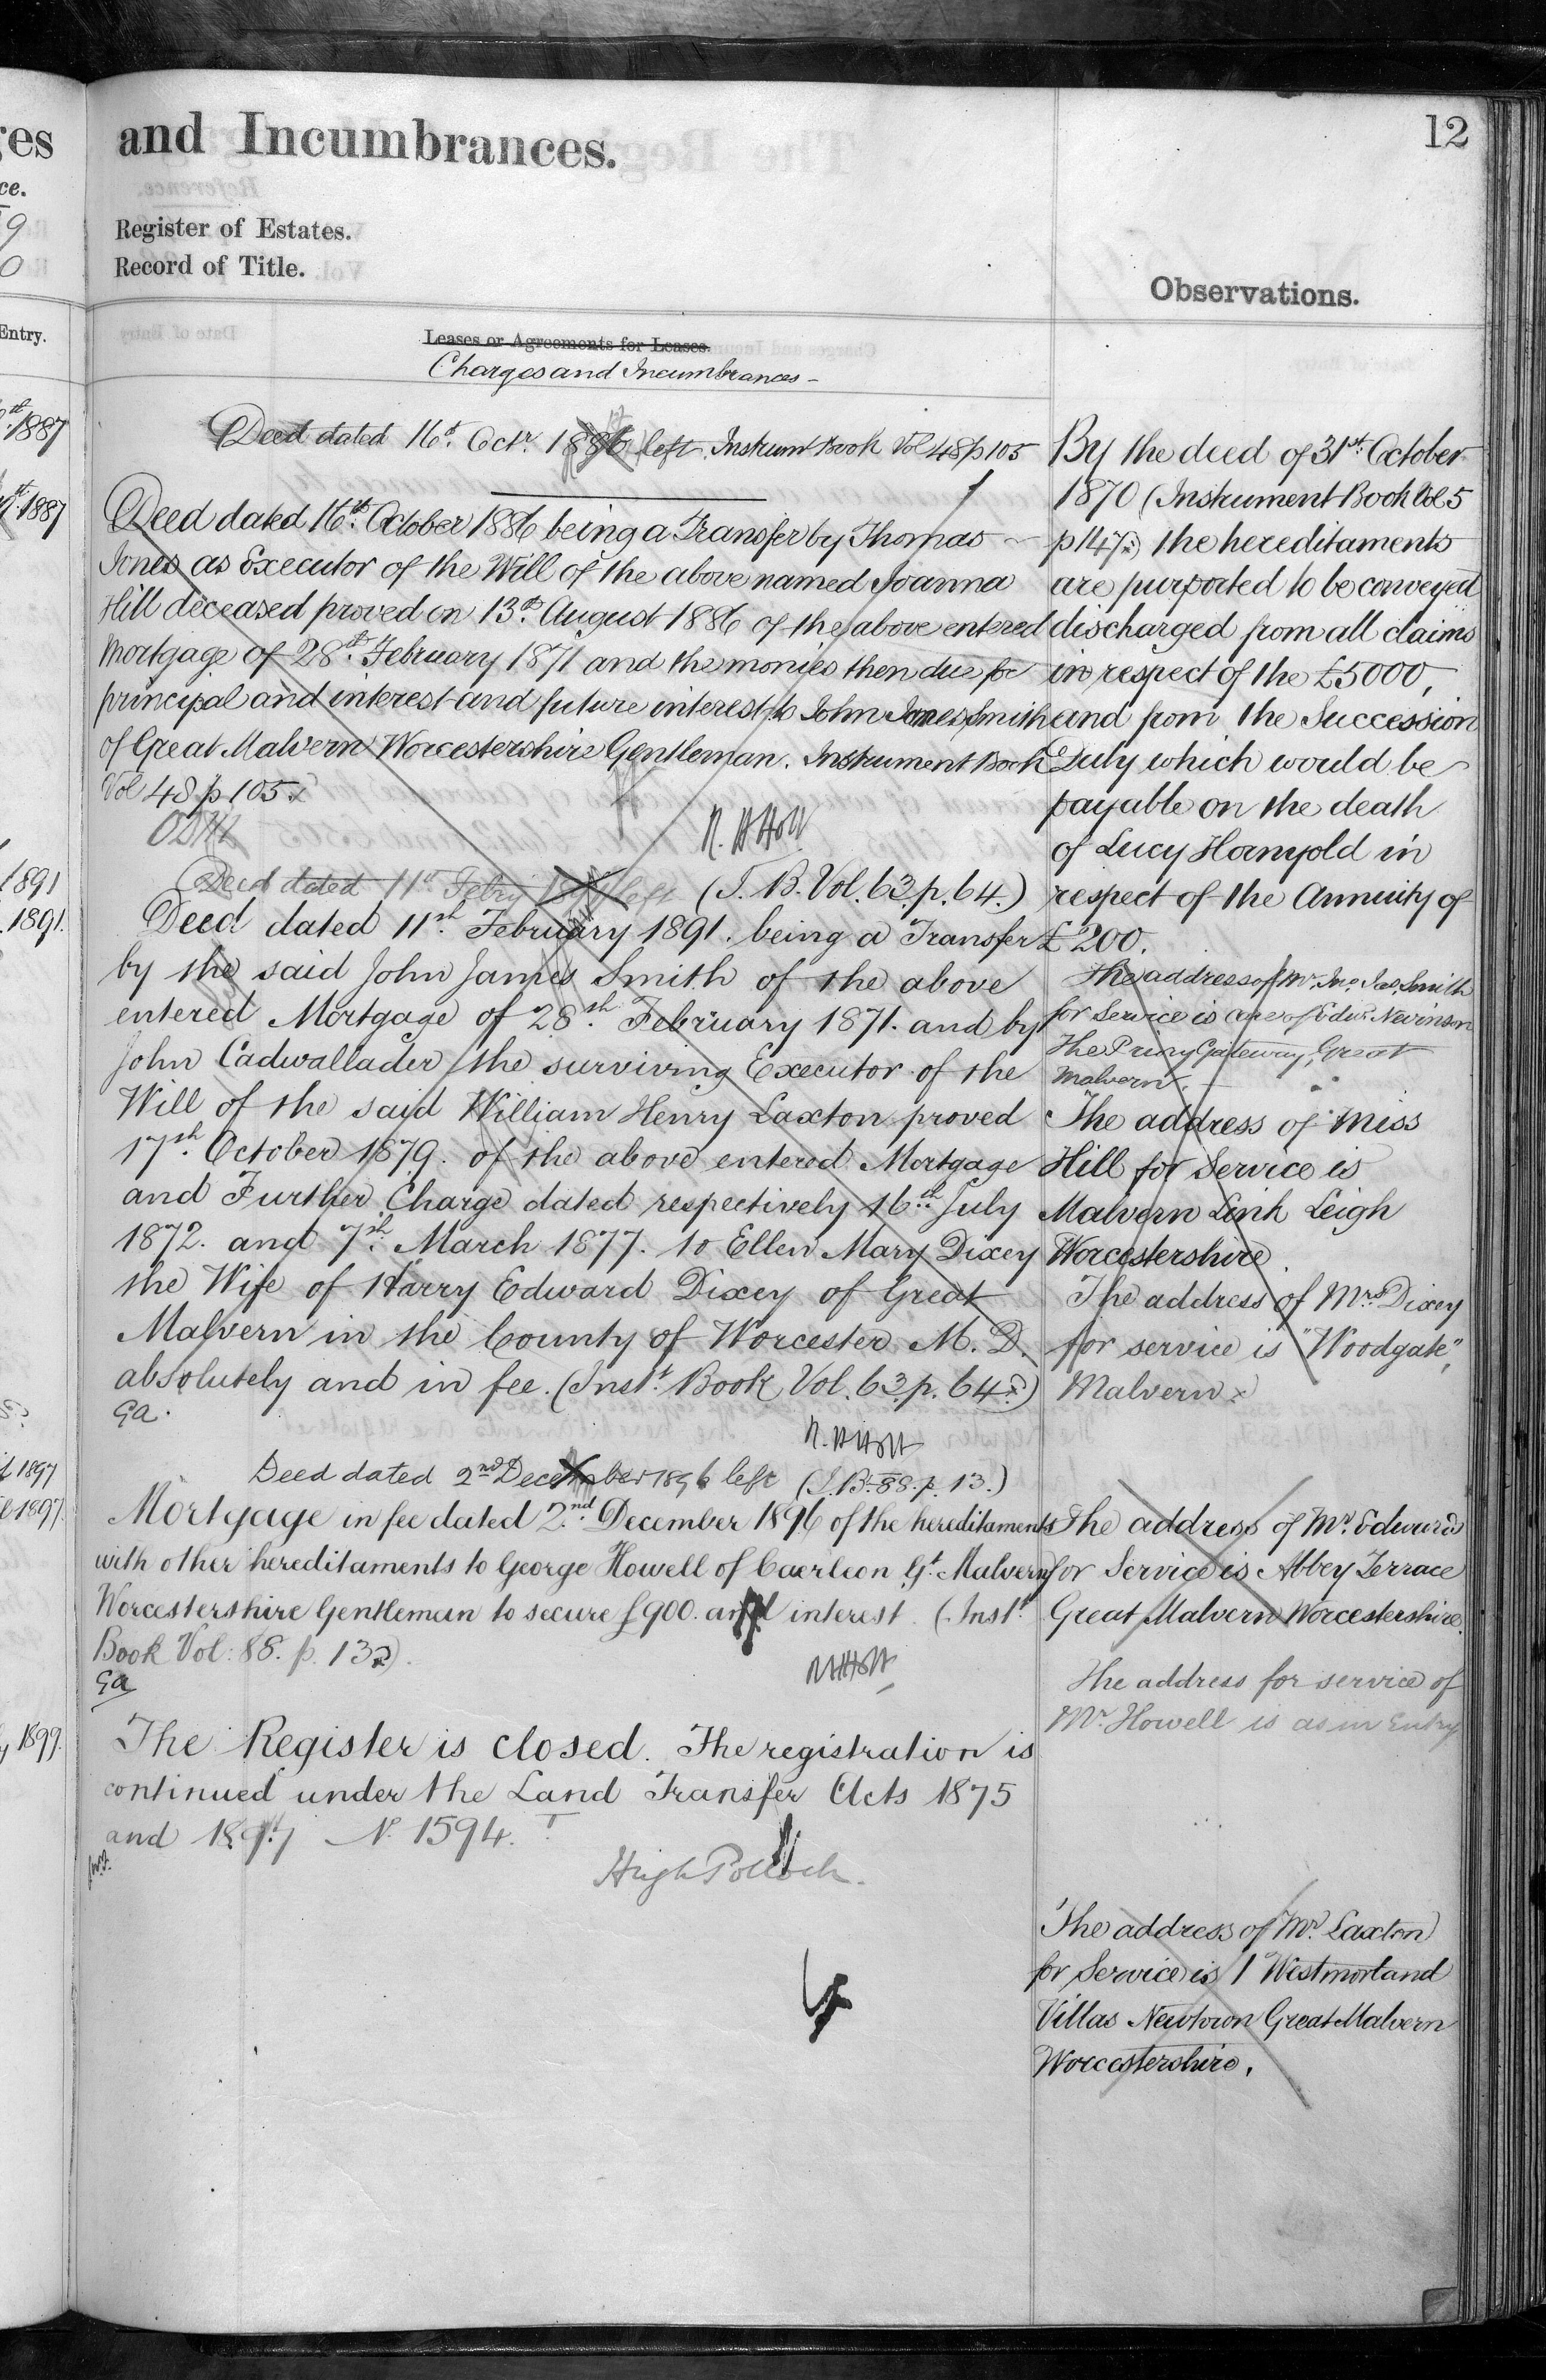 ges
ce.
9
0
Entry.
st 1887
st 1887
1891
1891.
1897
1897.
1899.
and Incumbrances.
12
Register of Estates.
Record of Title.
Observations.
Leases or Agreements for Leases.
Charges and Incumbrances –
Deed dated 16th Octr. 1886 left. Instrumt Book Vol 48 p 105
Deed dated 16th October 1886 being a Transfer by Thomas
Jones as Executor of the Will of the above named Joanna
Hill deceased proved on 13th August 1886 of the above entered
Mortgage of 28th February 1871 and the monies then due for
principal and interest and future interest to John James Smith
of Great Malvern Worcestershire Gentleman. Instrument Book
Vol 48 p 105.
Deed dated 11th Febry 1891 left (I. B. Vol. 63. p. 64.)
Deed dated 11th February 1891. being a Transfer
by the said John James Smith of the above
entered Mortgage of 28th February 1871. and by
John Cadwallader the surviving Executor of the
Will of the said William Henry Laxton proved
17th October 1879. of the above entered Mortgage
and Further Charge dated respectively 16th July
1872. and 7th March 1877. to Ellen Mary Dixey
the Wife of Harry Edward Dixey of Great
Malvern in the County of Worcester M. D.
absolutely and in fee. (Inst. Book Vol. 63. p. 64.)
Ga.
Deed dated 2nd December 1896 left (I. B. 88. p. 13.)
Mortgage in fee dated 2nd December 1896 of the hereditaments
with other hereditaments to George Howell of Caerleon Gt. Malvern
Worcestershire Gentleman to secure £900. and interest. (Inst.
Book Vol: 88. p. 13).
Ga
The Register is closed. The registration is
continued under the Land Transfer Acts 1875
and 1897 N. 1594.
Hugh Pollock.
By the deed of 31st October
1870 (Instrument Book Vol 5
p 147) the hereditaments
are purported to be conveyed
discharged from all claims
in respect of the £5000,
and from the Succession
Duty which would be
payable on the death
of Lucy Hornyold in
respect of the Annuity of
£200.
The address of Mr. Jno. Jas. Smith
for Service is care of Edwd. Nevinson
The Priory Gateway, Great
Malvern.
The address of Miss
Hill for Service is
Malvern Link Leigh
Worcestershire.
The address of Mrs. Dixey
for service is "Woodgate",
Malvern.
The address of Mr. Edwards
for Service is Abbey Terrace
Great Malvern Worcestershire.
The address for service of
Mr. Howell is as in Entry
The address of Mr. Laxton
for Service is 1 Westmorland
Villas Newtown Great Malvern
Worcestershire.